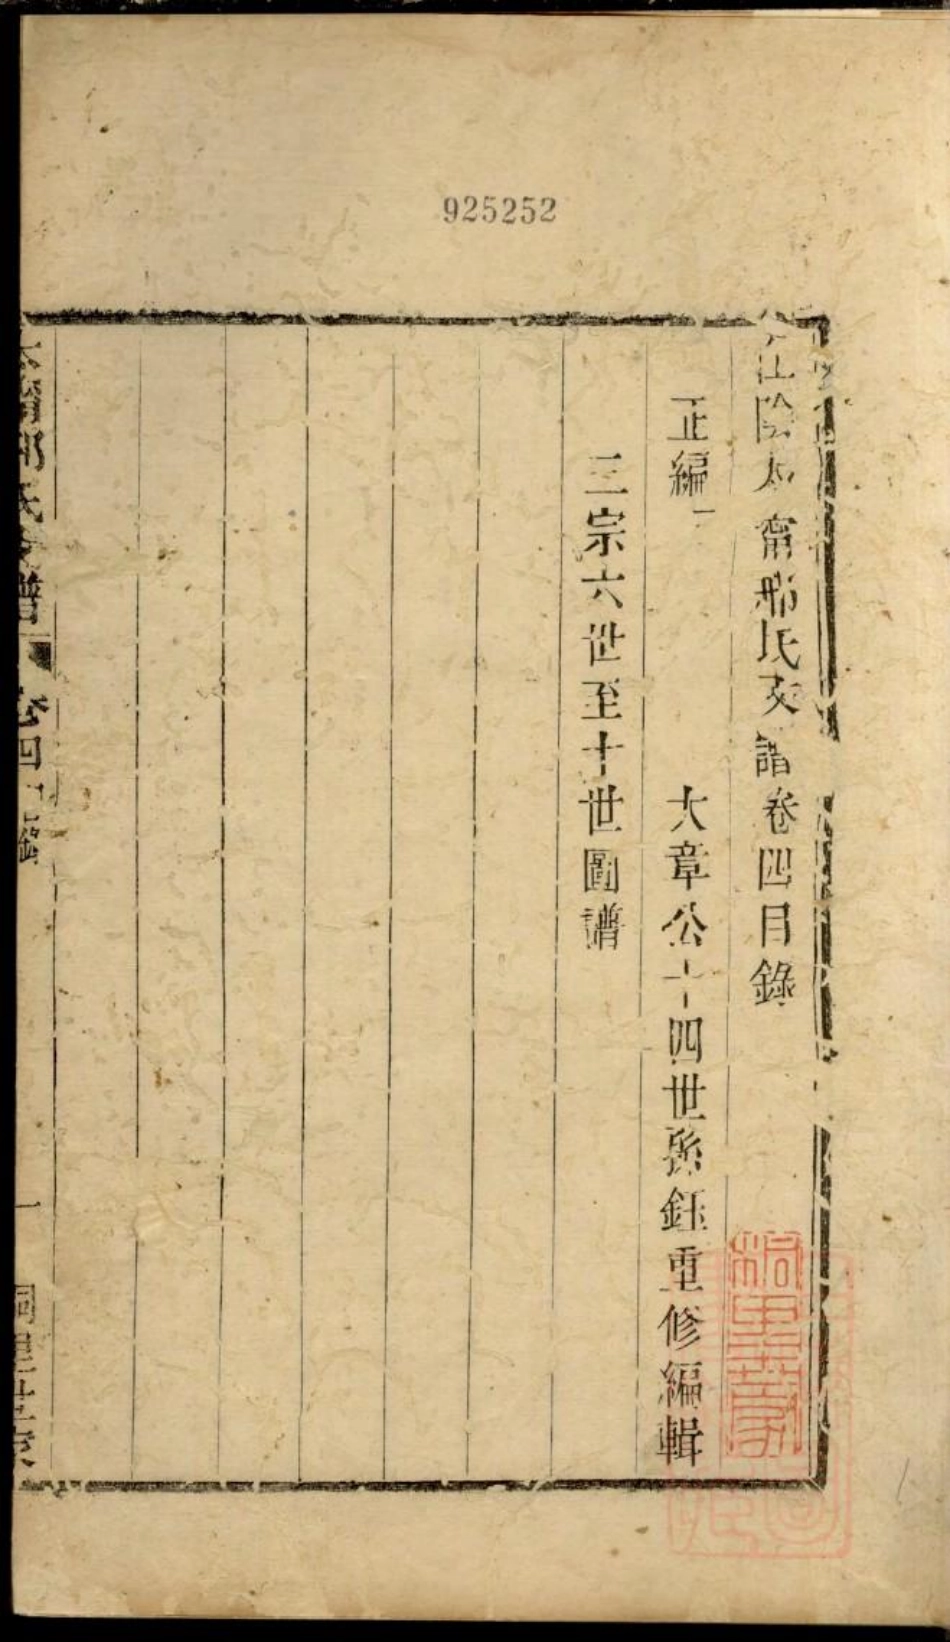 925252
江陰太甯邢氏支譜卷四目錄
正編一
大章公十四世孫鈺重修編輯
三宗六世至十世圖譜
太甯邢氏支譜 卷四目錄 一 桐里世家
桐里世家